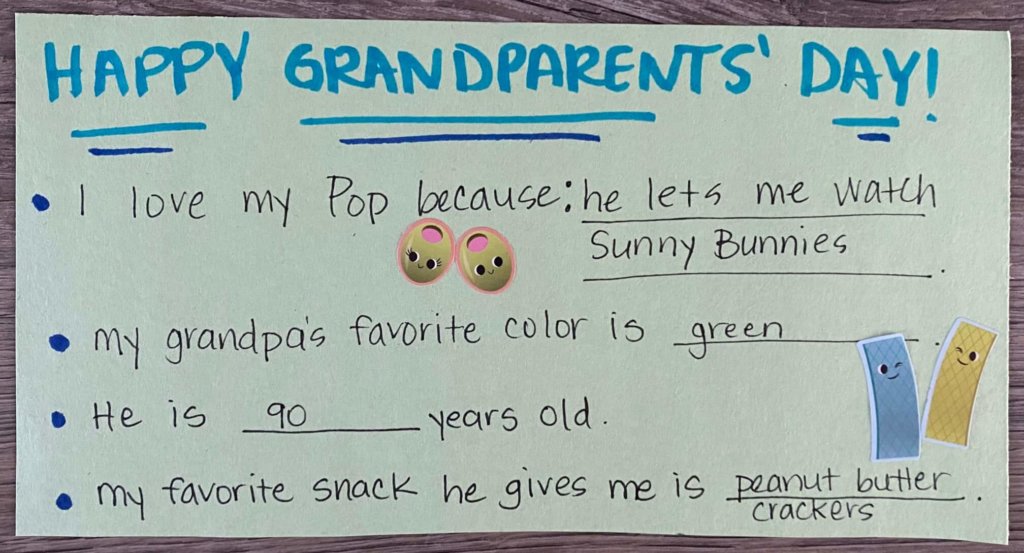 HAPPY GRANDPARENTS' DAY!
• I love my Pop because: he lets me watch
Sunny Bunnies.
• my grandpa's favorite color is green.
• He is 90 years old.
• my favorite snack he gives me is peanut butter
crackers.